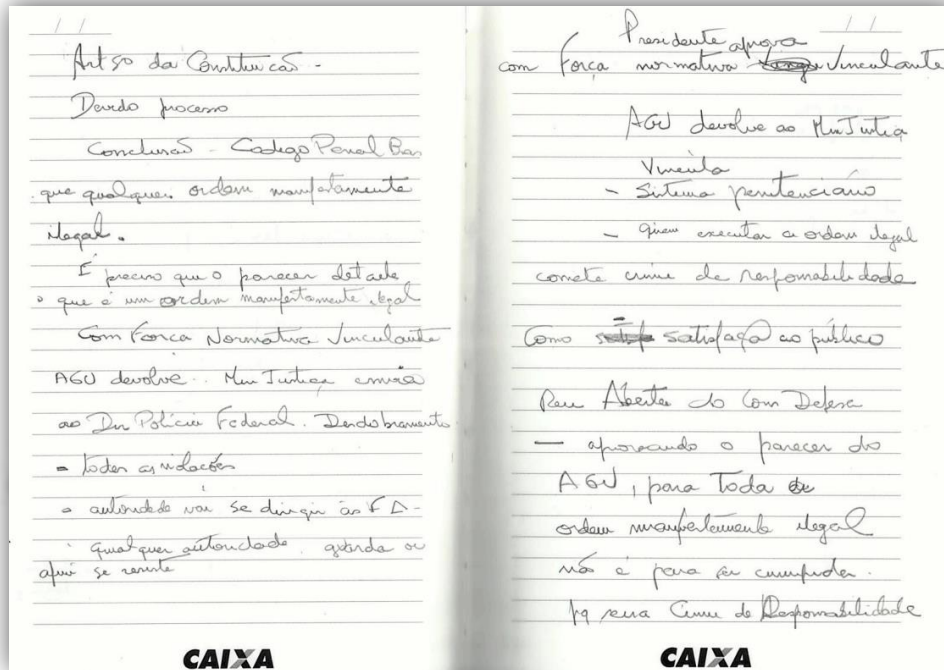 Art 5º da Constituicão -
Devido processo
Conclusão - Codigo Penal
que qualquer ordem manifestamente
ilegal.
É preciso que o parecer detale
o que é um ordem manifestamente ilegal
Com Força Normativa Vinculante
AGU devolve.. Min Justiça envia
ao Dir Polícia Federal. Desdobramento
- todas as violações
- autoridade vai se dirigir às FA-
qualquer autoridade, quando ou
se resiste
CAIXA
Presidente aprova
com Força normativa Vinculante
AGU devolve ao Min Justiça
Vincula
- Sistema penitenciário
- quem executar a ordem ilegal
comete crime de responsabilidade
Como satisfaça ao público
Reu Aberta do Com Defesa
- aprovando o parecer do
AGU, para Toda
ordem manifestamente ilegal
não é para ser cumprida.
pq seria Crime de Responsabilidade
CAIXA